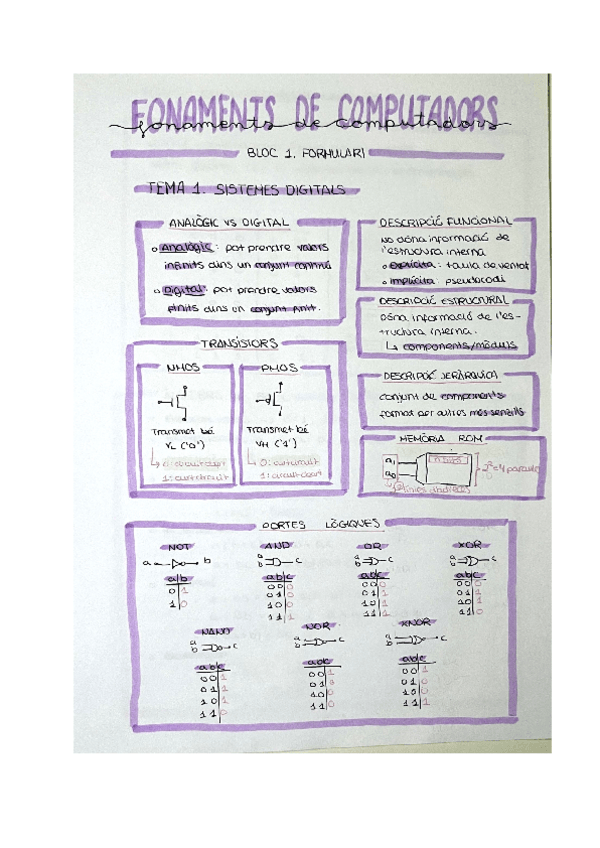 FONAMENTS DE COMPUTADORS
fonaments de computadors
BLOC 1. FORMULARI
TEMA 1. SISTEMES DIGITALS
ANALÒGIC VS DIGITAL
Analògic: pot prendre valors
infinits dins un conjunt continu
Digital: pot prendre valors
finits dins un conjunt finit.
TRANSISTORS
NMOS
Transmet bé
VL ('0')
0: circuit obert
1: curtcircuit
PMOS
Transmet bé
VH ('1')
0: curtcircuit
1: circuit obert
DESCRIPCIÓ FUNCIONAL
No dóna informació de
l'estructura interna
explícita: taula de veritat
implícita: pseudocodi
DESCRIPCIÓ ESTRUCTURAL
Dóna informació de l'es-
tructura interna.
↳ components/mòduls
DESCRIPCIÓ JERÀRQUICA
conjunt de components
format per altres més senzills
MEMÒRIA ROM
a1
a0
2²=4 paraules
PORTES LÒGIQUES
NOT
a b
a b
0 1
1 0
AND
a
b
c
a b c
0 0 0
0 1 0
1 0 0
1 1 1
OR
a
b
c
a b c
0 0 0
0 1 1
1 0 1
1 1 1
XOR
a
b
c
a b c
0 0 0
0 1 1
1 0 1
1 1 0
NAND
a
b
c
a b c
0 0 1
0 1 1
1 0 1
1 1 0
NOR
a
b
c
a b c
0 0 1
0 1
1 0 0
1 1 0
XNOR
a
b
c
a b c
0 0 1
0 1 0
1 0 0
1 1 1